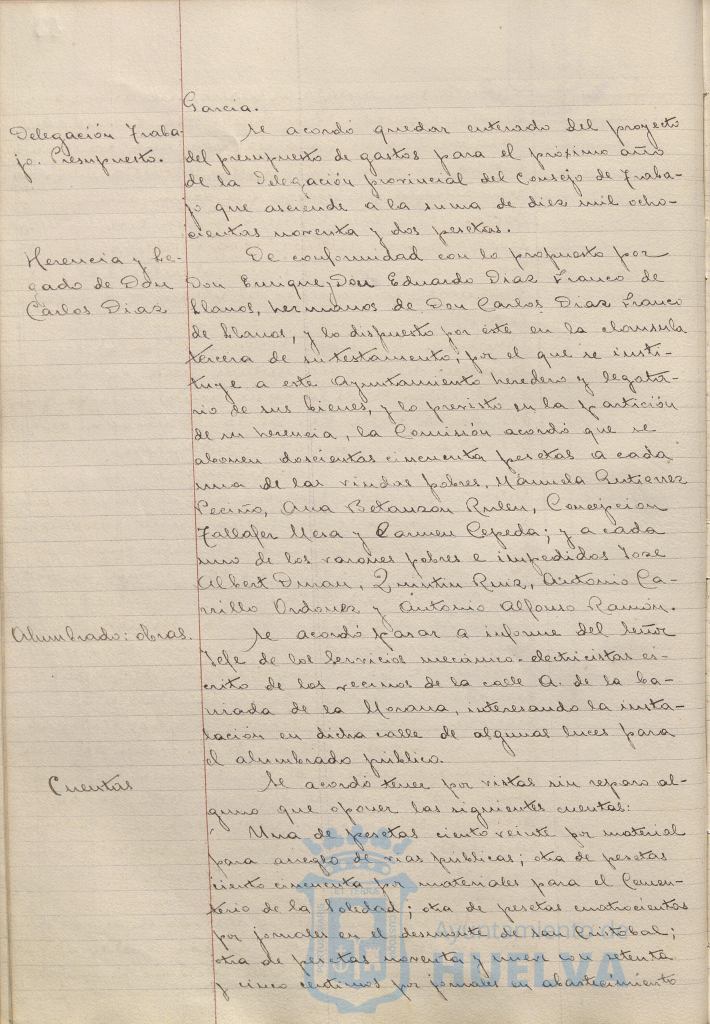 García.
Delegación Traba-
jo. Presupuesto.
Se acordó quedar enterado del proyecto
del presupuesto de gastos para el próximo año
de la Delegación provincial del Consejo de Traba-
jo que asciende a la suma de diez mil ocho-
cientas noventa y dos pesetas.
Herencia y Le-
gado de Don
Carlos Diaz
De conformidad con lo propuesto por
Don Enrique y Don Eduardo Diaz Franco de
Llanos, hermanos de Don Carlos Diaz Franco
de Llanos, y lo dispuesto por éste en la clausula
tercera de su testamento, por el que se insti-
tuye a este Ayuntamiento heredero y legata-
rio de sus bienes, y lo previsto en la partición
de su herencia, la Comisión acordó que se
abonen doscientas cincuenta pesetas a cada
una de las viudas pobres, Manuela Gutierrez
Peciño, Ana Betanzon Rulen, Concepcion
Tallafer Mesa y Carmen Cepeda; y a cada
uno de los varones pobres e impedidos José
Albert Duran, Quintin Ruiz, Antonio Ca-
rrillo Ordoñez y Antonio Alfonso Ramón.
Alumbrado: obras.
Se acordó pasar a informe del Señor
Jefe de los Servicios mecánico-electricistas es-
crito de los vecinos de la calle A. de la ba-
rriada de la Morana, interesando la insta-
lación en dicha calle de algunas luces para
el alumbrado público.
Cuentas
Se acordó tener por vistas sin reparo al-
guno que oponer las siguientes cuentas:
Una de pesetas ciento veinte por material
para arreglo de vias públicas; otra de pesetas
ciento cincuenta por materiales para el Cemen-
terio de la Soledad; otra de pesetas cuatrocientas
por jornales en el desmonte de San Cristobal;
otra de pesetas noventa y nueve con setenta
y cinco centimos por jornales en abastecimiento
Ayuntamiento de
HUELVA